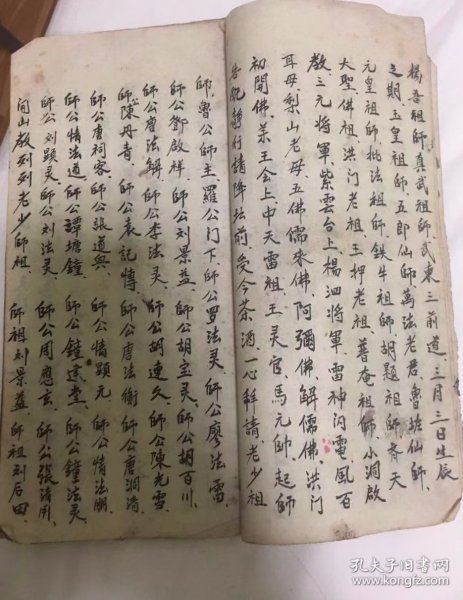 楊吾祖師真武祖師武東三前遊三月三日生辰
之期玉皇祖師五郎仙師萬法老君魯班仙師
元皇祖師批法祖師鉄牛祖師胡題祖師齐天
大聖佛祖洪门老祖王押老祖普庵祖師小洞啟
教三元將軍紫雲台上楊泗將軍雷神闪電風百
耳母梨山老母五佛儒來佛阿彌佛解儒佛洪门
初開佛茶王会上中天雷祖王灵官馬元帅起師
行請降坛前受今茶酒一心拜請老少祖
師魯公師主羅公门下師公罗法灵師公廖法雷
師公鄧啟祥師公刘景益師公胡宝灵師公胡百川
師公廖法解師公李法灵師公胡連久師公陳光雪
師陳丹青師公袁記傳師公唐法衡師公唐洞清
師公唐祠客師公張道興師公情顕元師公情法朋
師公情法道師公譚塘鐘師公鐘宪堂師公鐘法灵
師公刘顕灵師公刘法灵師公周應玄師公張清用
闾山教列列老少師祖師祖刘景益師祖刘后田
孔夫子旧书网
www.kongfz.com